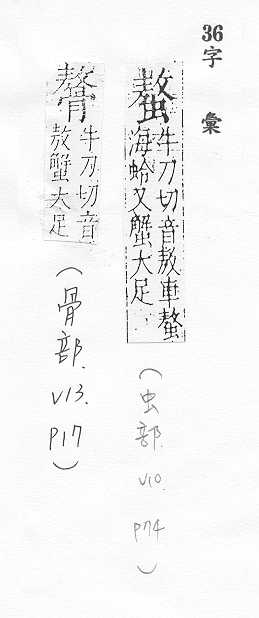 36
字彙
螯
牛刀切音敖車螯
海蛤又蟹大足
(虫部. V10. P74)
䯠
牛刀切音
敖蟹大足
(骨部. V13. P17)